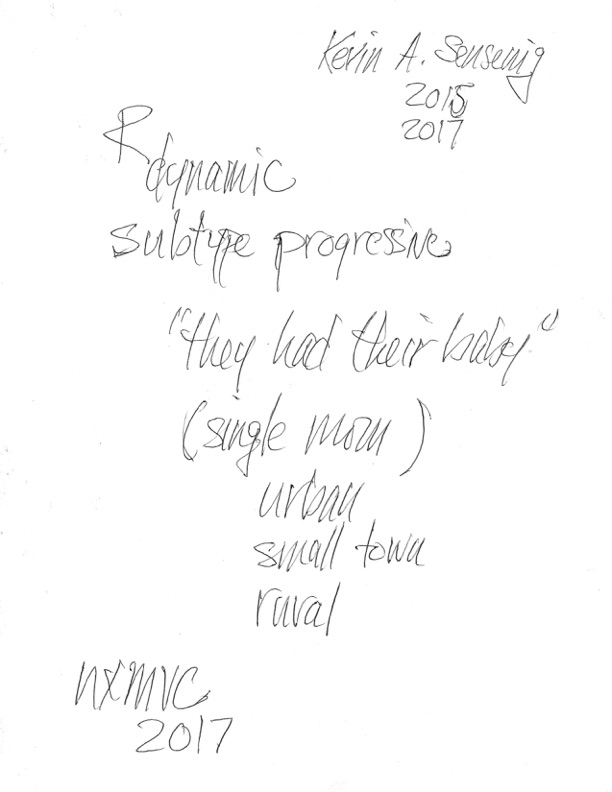 Kevin A. Sensenig
2015
2017
R
dynamic
subtype progressive
"they had their baby"
(single mom)
urban
small town
rural
nxmvc
2017